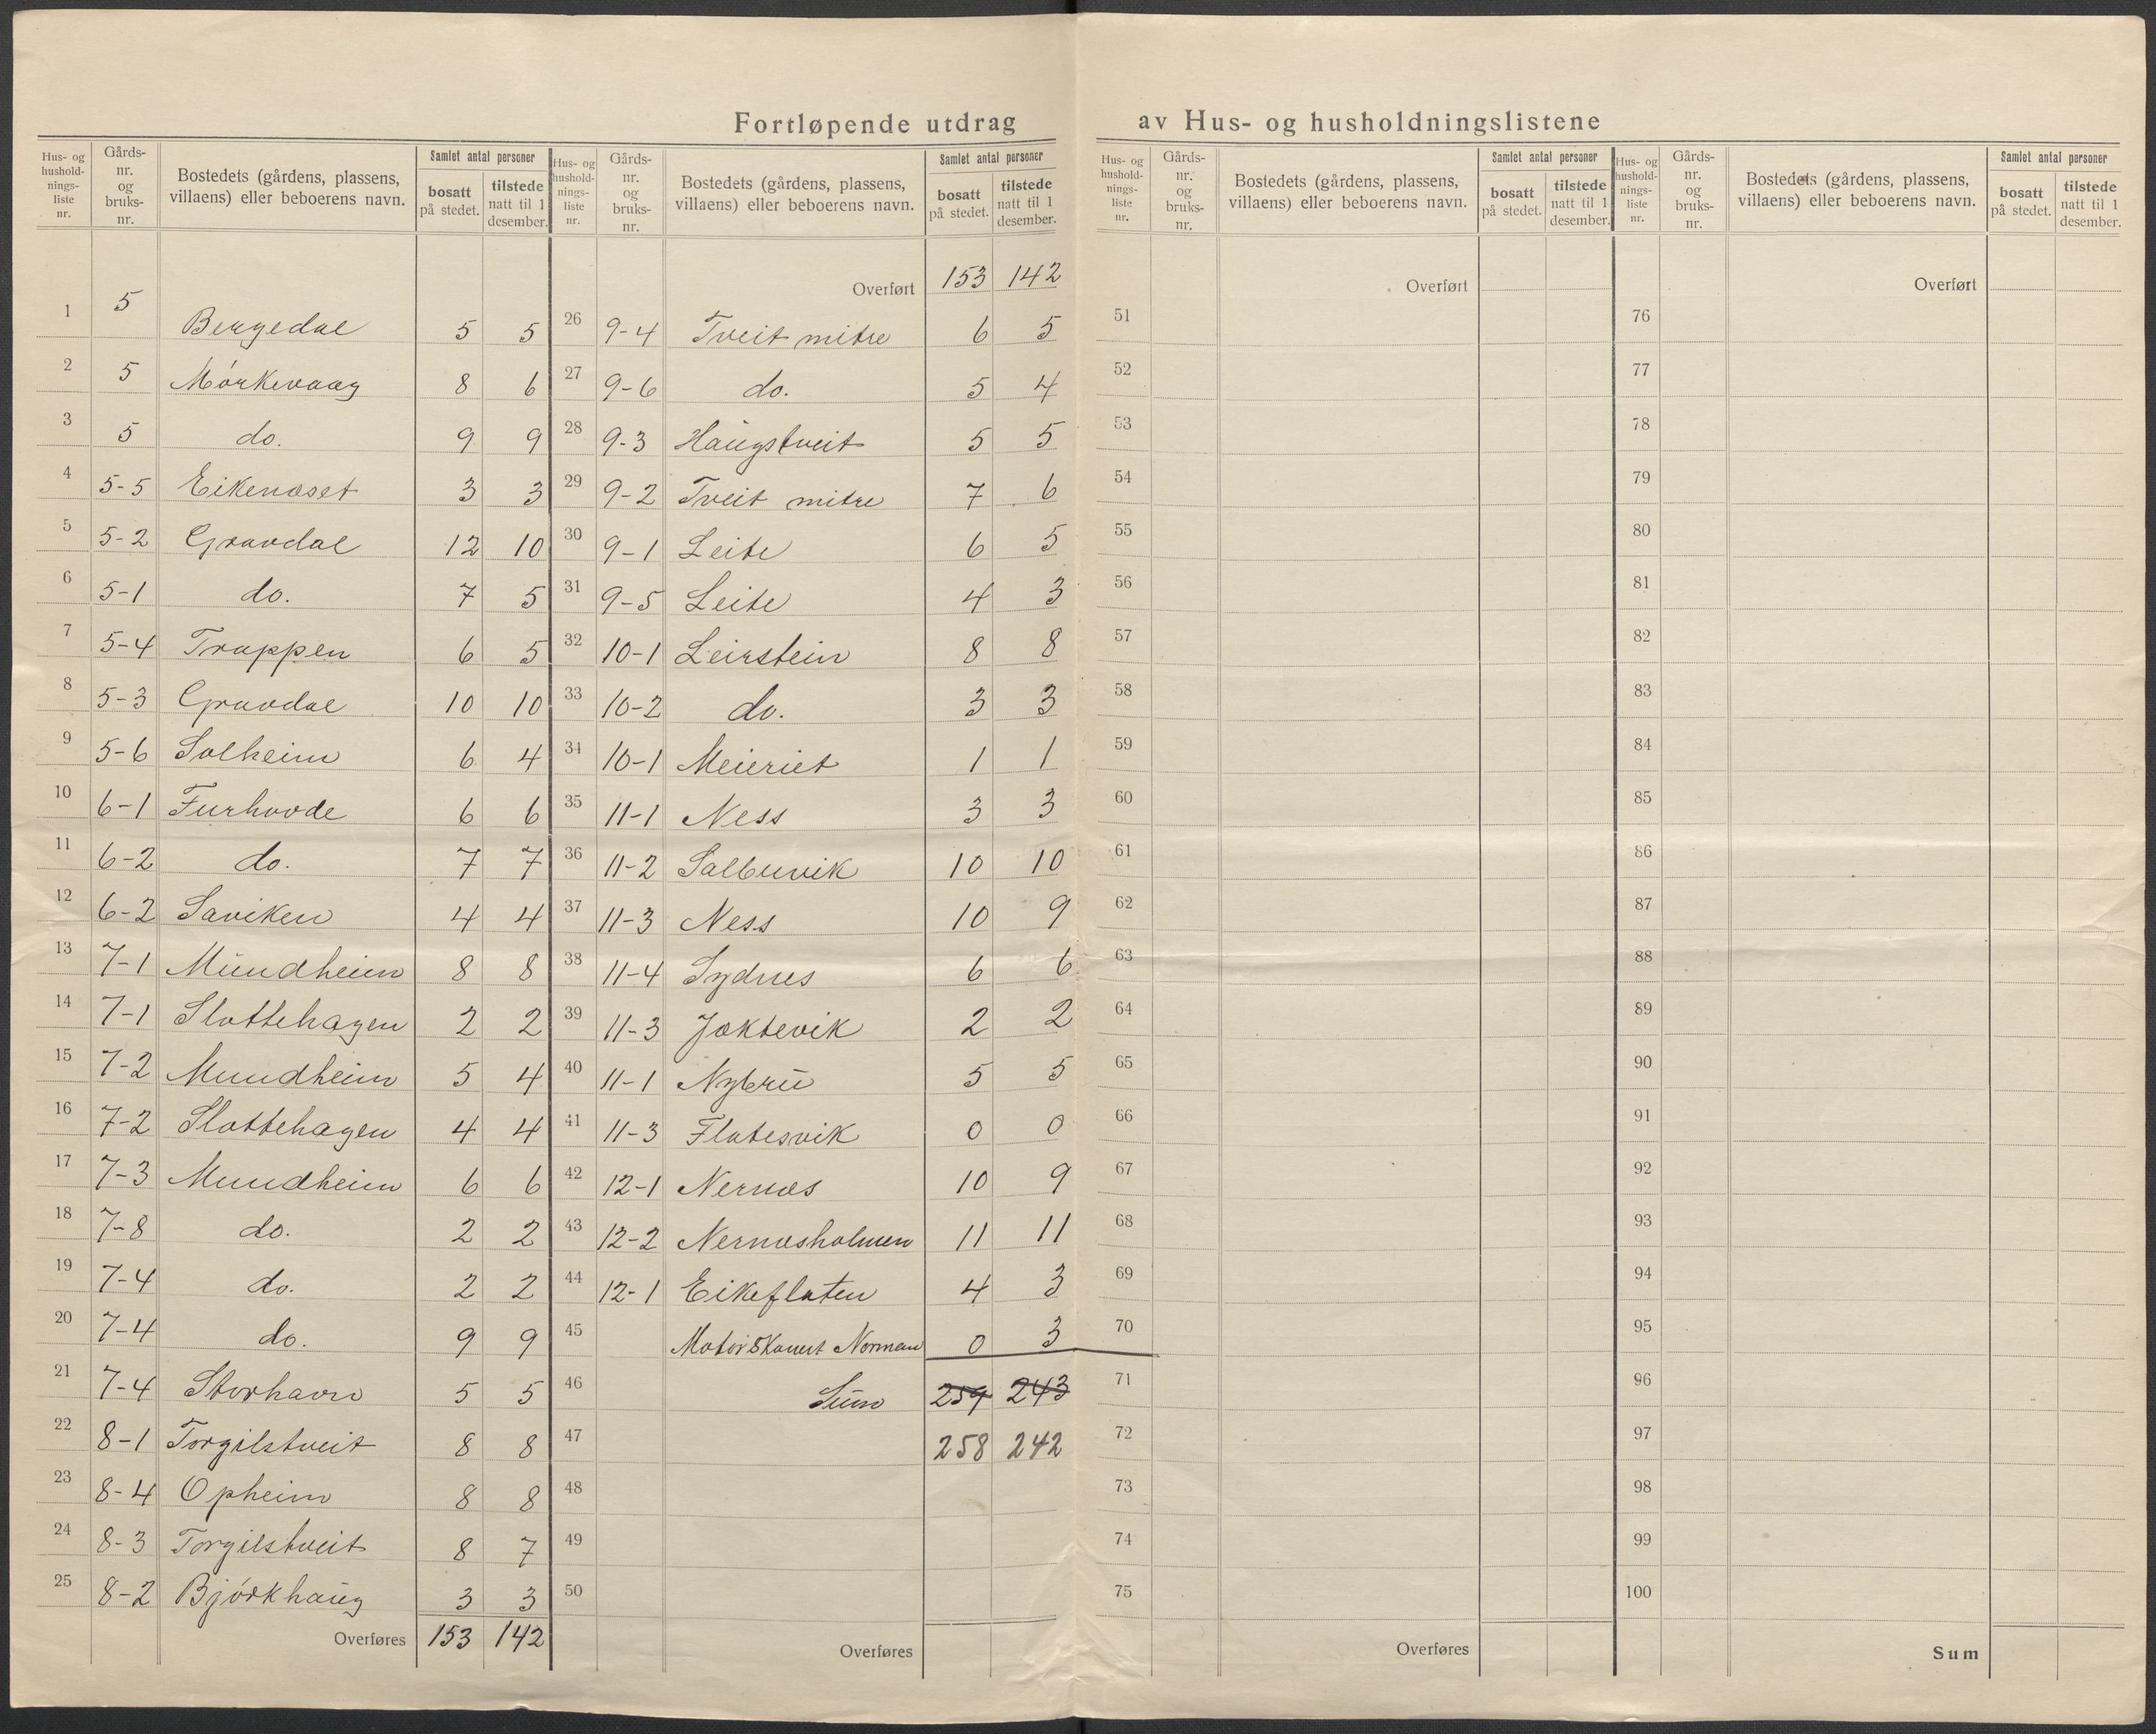 Fortløpende utdrag av Hus- og husholdningslistene
Hus- og hushold-nings-liste nr. Gårds-nr. og bruks-nr. Bostedets (gårdens, plassens, villaens) eller beboerens navn. Samlet antal personer bosatt på stedet. tilstede natt til 1 desember.
1 5 Bergedal 5 5
2 5 Mórkevaag 8 6
3 5 do. 9 9
4 5-5 Eikenæset 3 3
5 5-2 Gravdal 12 10
6 5-1 do. 7 5
7 5-4 Trappen 6 5
8 5-3 Gravdal 10 10
9 5-6 Solheim 6 4
10 6-1 Furhovde 6 6
11 6-2 do. 7 7
12 6-2 Saviken 4 4
13 7-1 Mundheim 8 8
14 7-1 Slottehagen 2 2
15 7-2 Mundheim 5 4
16 7-2 Slottehagen 4 4
17 7-3 Mundheim 6 6
18 7-8 do. 2 2
19 7-4 do. 2 2
20 7-4 do. 9 9
21 7-4 Storhavn 5 5
22 8-1 Torgilstveit 8 8
23 8-4 Opheim 8 8
24 8-3 Torgilstveit 8 7
25 8-2 Bjórkhaug 3 3
Overføres 153 142
Hus- og hushold-nings-liste nr. Gårds-nr. og bruks-nr. Bostedets (gårdens, plassens, villaens) eller beboerens navn. Samlet antal personer bosatt på stedet. tilstede natt til 1 desember.
Overført 153 142
26 9-4 Tveit mitre 6 5
27 9-6 do. 5 4
28 9-3 Haugstveit 5 5
29 9-2 Tveit mitre 7 6
30 9-1 Leite 6 5
31 9-5 Leite 4 3
32 10-1 Leirstein 8 8
33 10-2 do. 3 3
34 10-1 Meieriet 1 1
35 11-1 Ness 3 3
36 11-2 Salbuvik 10 10
37 11-3 Ness 10 9
38 11-4 Sydnes 6 6
39 11-3 Jæktevik 2 2
40 11-1 Nybru 5 5
41 11-3 Flatesvik 0 0
42 12-1 Nernæs 10 9
43 12-2 Nernæsholmen 11 11
44 12-1 Eikeflaten 4 3
45 Motorskonert Norman 0 3
46 Sum 259 243
47 258 242
48
49
50
Overføres
Hus- og hushold-nings-liste nr. Gårds-nr. og bruks-nr. Bostedets (gårdens, plassens, villaens) eller beboerens navn. Samlet antal personer bosatt på stedet. tilstede natt til 1 desember.
Overført
51
52
53
54
55
56
57
58
59
60
61
62
63
64
65
66
67
68
69
70
71
72
73
74
75
Overføres
Hus- og hushold-nings-liste nr. Gårds-nr. og bruks-nr. Bostedets (gårdens, plassens, villaens) eller beboerens navn. Samlet antal personer bosatt på stedet. tilstede natt til 1 desember.
Overført
76
77
78
79
80
81
82
83
84
85
86
87
88
89
90
91
92
93
94
95
96
97
98
99
100
Sum